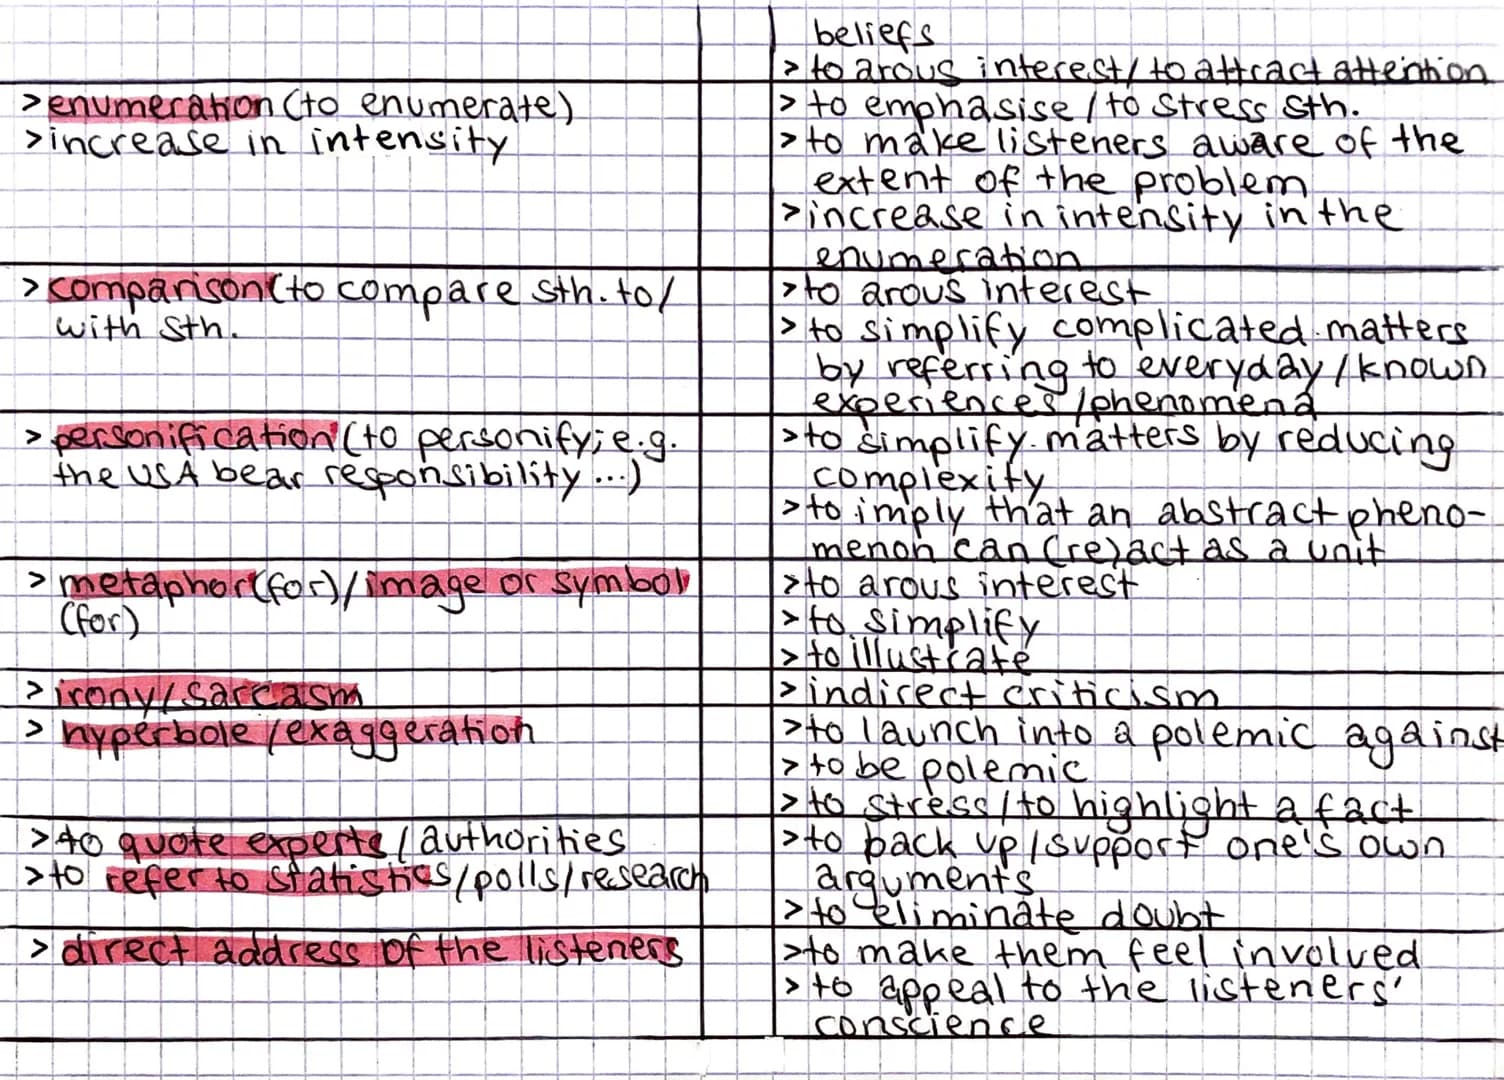 beliefs
> to arous interest/to attract attention
> enumeration (to enumerate)
> increase in intensity
> to emphasise / to stress sth.
> to make listeners aware of the
extent of the problem
> increase in intensity in the
enumeration
> comparison (to compare sth. to/
with sth.
> to arous interest
> to simplify complicated matters
by referring to everyday/known
experiences/phenomena
> personification (to personify; e.g.
the USA bear responsibility ...)
> to simplify matters by reducing
complexity
> to imply that an abstract pheno-
menon can (re)act as a unit
> metaphor (for)/image or symbol
(for)
> to arous interest
> to simplify
> to illustrate
> irony/sarcasm
> indirect criticism
> hyperbole/exaggeration
> to launch into a polemic against
> to be polemic
> to stress/to highlight a fact
> to quote experts/authorities
> to refer to statistics/polls/research
> to back up/support one's own
arguments
> to eliminate doubt
> direct address of the listeners
> to make them feel involved
> to appeal to the listeners'
conscience